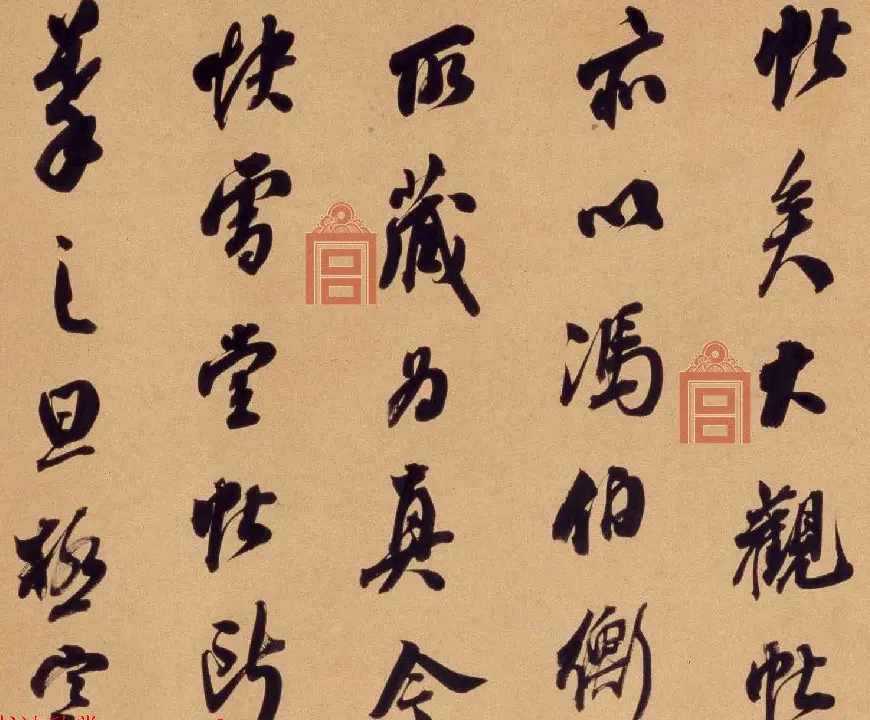 帖矣大觀帖
亦以馮伯衡
所藏為真今
快雪堂帖所
摹之旦極空